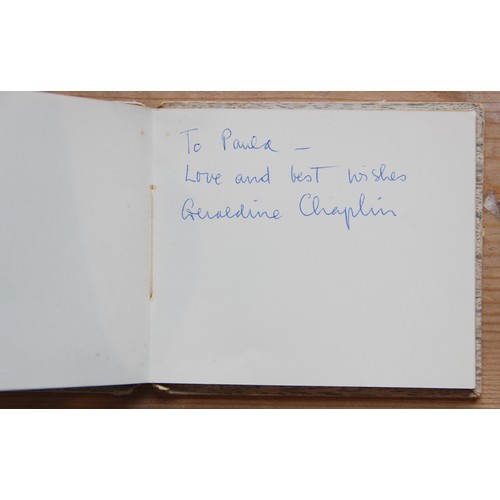 To Paula —
Love and best wishes
Geraldine Chaplin